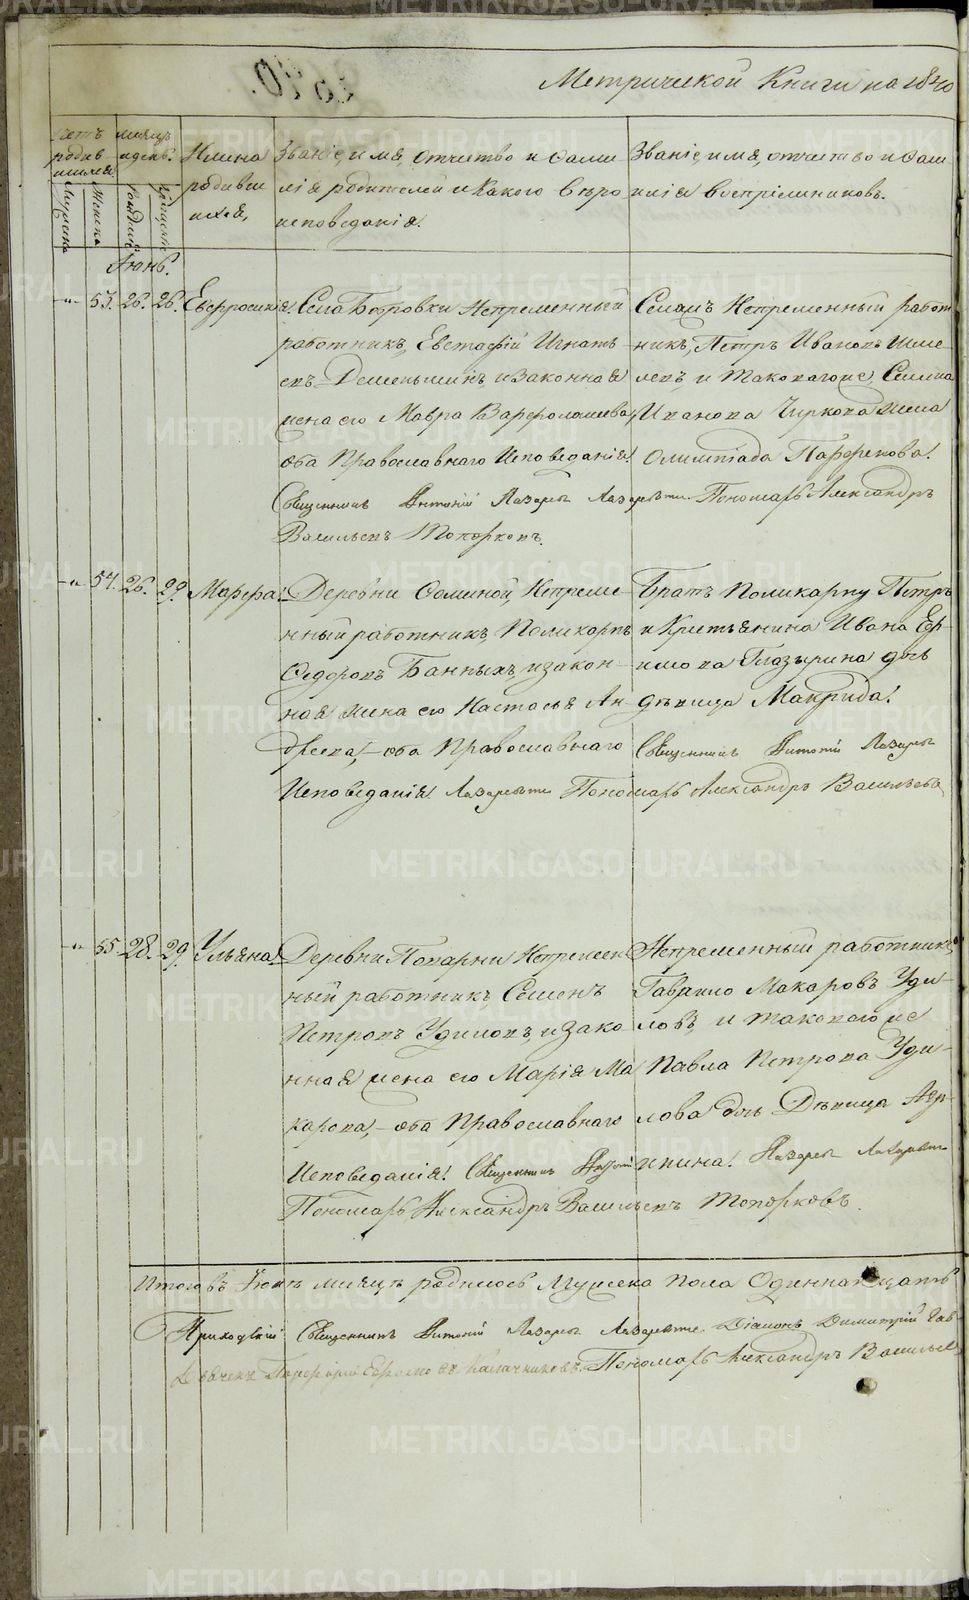 Метрической Книги на 1840
Счетъ родившихся
Мужеска
Женска
месяцъ и день.
Рожденія
Крещенія
Имена родившихся,
Званіе, имя, отчество и фамилія родителей и какого вѣроисповѣданія.
Званіе, имя, отчество и фамилія воспріемниковъ.
Іюнь.
-"- 53. 26. 26. Евфросинія.
Села Бобровки Непременный
работникъ, Евстафій Игнатьевъ
Дементьинъ, и законная
жена его Мавра Варфоломеева,
оба Православнаго Исповеданія.
Селамъ Непременный работникъ,
Петръ Ивановъ
и таковагоже
Иванова Чиркова жена
Олимпіада Парфенова.
Священникъ Антоній Лазаревъ Пономарь Александръ
Васильевъ Топорковъ.
-"- 54. 26. 29. Марфа.
Деревни Фоминой, Непременный
работникъ, Поликарпъ
Федоровъ Банныхъ, и законная
жена его Настасья
Андреева, оба Православнаго
Исповеданія.
Братъ Поликарпу Петръ
и Крестьянина Ивана
Глазырина дочь
дѣвица Макрида.
Священникъ Антоній Лазаревъ
Пономарь Александръ Васильевъ
-"- 55. 28. 29. Ульяна.
Деревни Поварни Непременный
работникъ Семенъ
Петровъ Удиловъ, и законная
жена его Марія Макарова,
оба Православнаго
Исповеданія.
Непременный работникъ
Гаврило Макаровъ Удиловъ,
и таковагоже
Павла Петрова Удилова
дочь Дѣвица
Священникъ Антоній Лазаревъ
Пономарь Александръ Васильевъ Топорковъ.
Итого въ Іюнѣ месяцѣ родилось Мужеска пола Одиннатцать
Приходскій Священникъ Антоній Лазаревъ Діаконъ Димитрій
Дьячекъ Порфирій Калачниковъ. Пономарь Александръ Васильевъ
METRIKI.GASO-URAL.RU